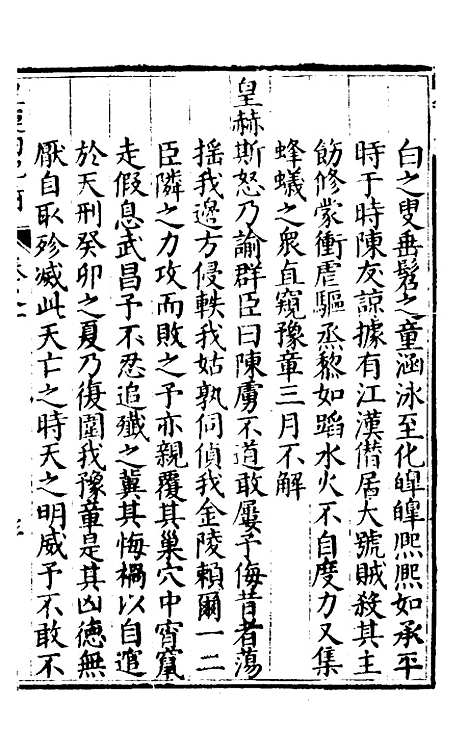 白之叟垂髫之童涵泳至化皡皡熈熈如承平
時于時陳友諒據有江漢僣居大號賊殺其主
飭修蒙衝虐驅烝黎如蹈水火不自度力又集
蜂蟻之衆直窺豫章三月不解
皇赫斯怒乃諭群臣曰陳虜不道敢屢予侮昔者蕩
揺我邊方侵軼我姑孰伺偵我金陵頼爾一二
臣隣之力攻而敗之予亦親覆其巢穴中宵竄
走假息武昌予不忍追殱之冀其悔禍以自逭
於天刑癸卯之夏乃復圍我豫章是其凶德無
厭自取殄滅此天亡之時天之明威予不敢不